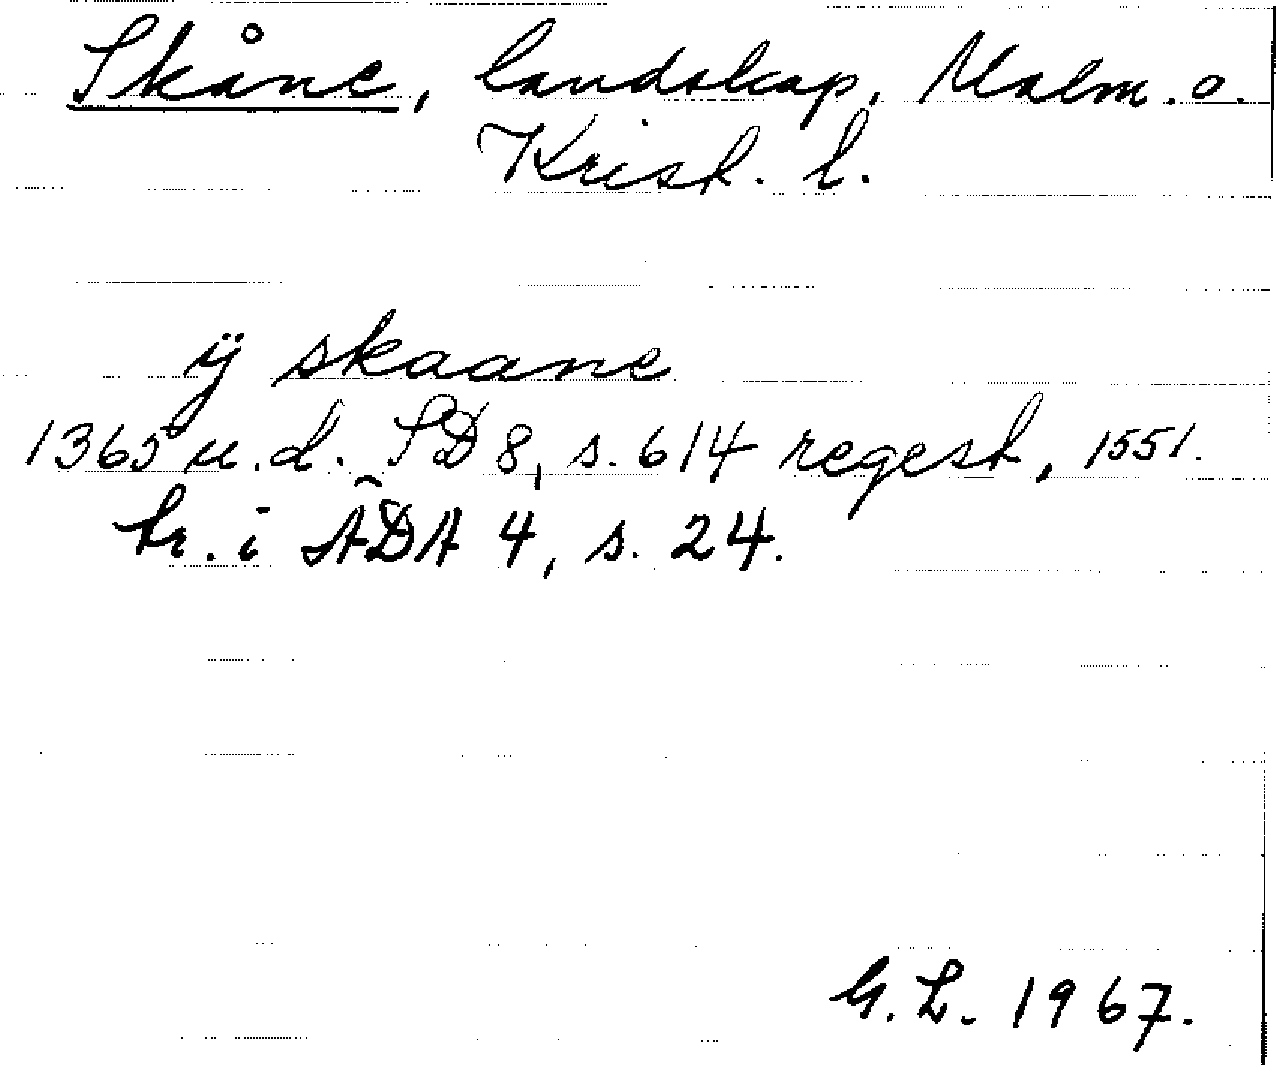 Skåne, landskap, Malm. o.
Krist. l.
ÿ skaane
1365 u.d. SD 8, s. 614 regest, 1551.
tr. i ÄDA 4, s. 24.
G. L. 1967.